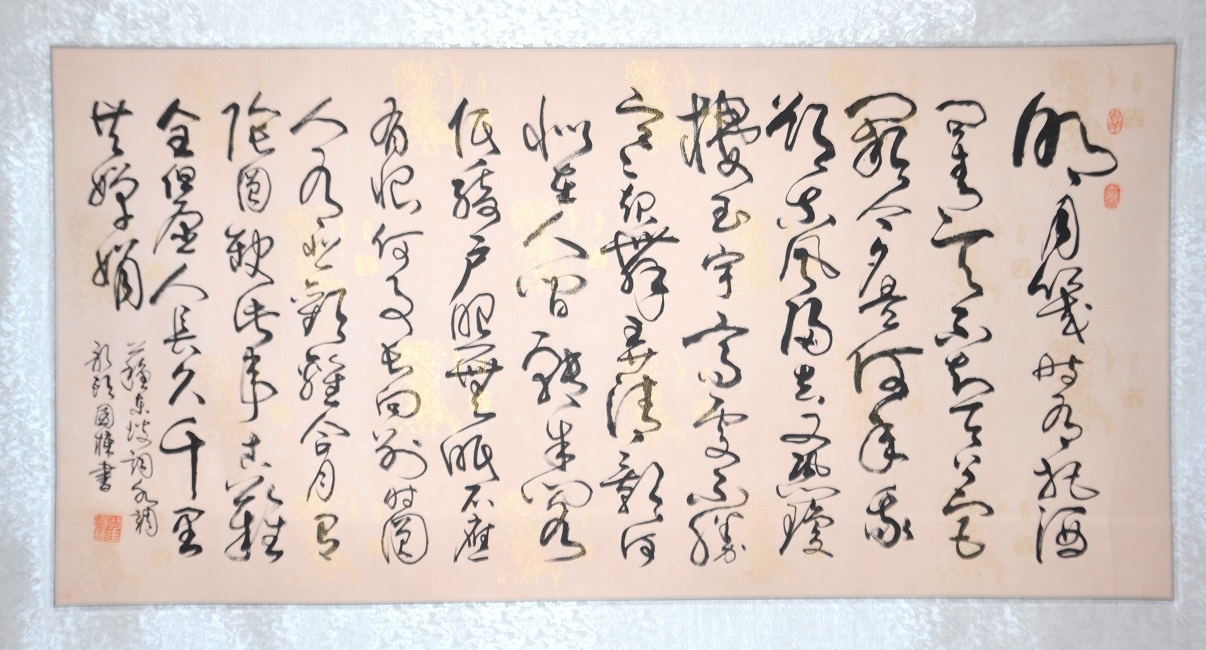 明月幾時有把酒
問青天不知天上宮
闕今夕是何年我
欲乘風歸去又恐瓊
樓玉宇高處不勝
寒起舞弄清影何
似在人間轉朱閣
低綺戶照無眠不應
有恨何事長向別時圓
人有悲歡離合月有
陰圓缺此事古難
全但願人長久千里
共嬋娟
蘇東坡詞水調
歌頭國書